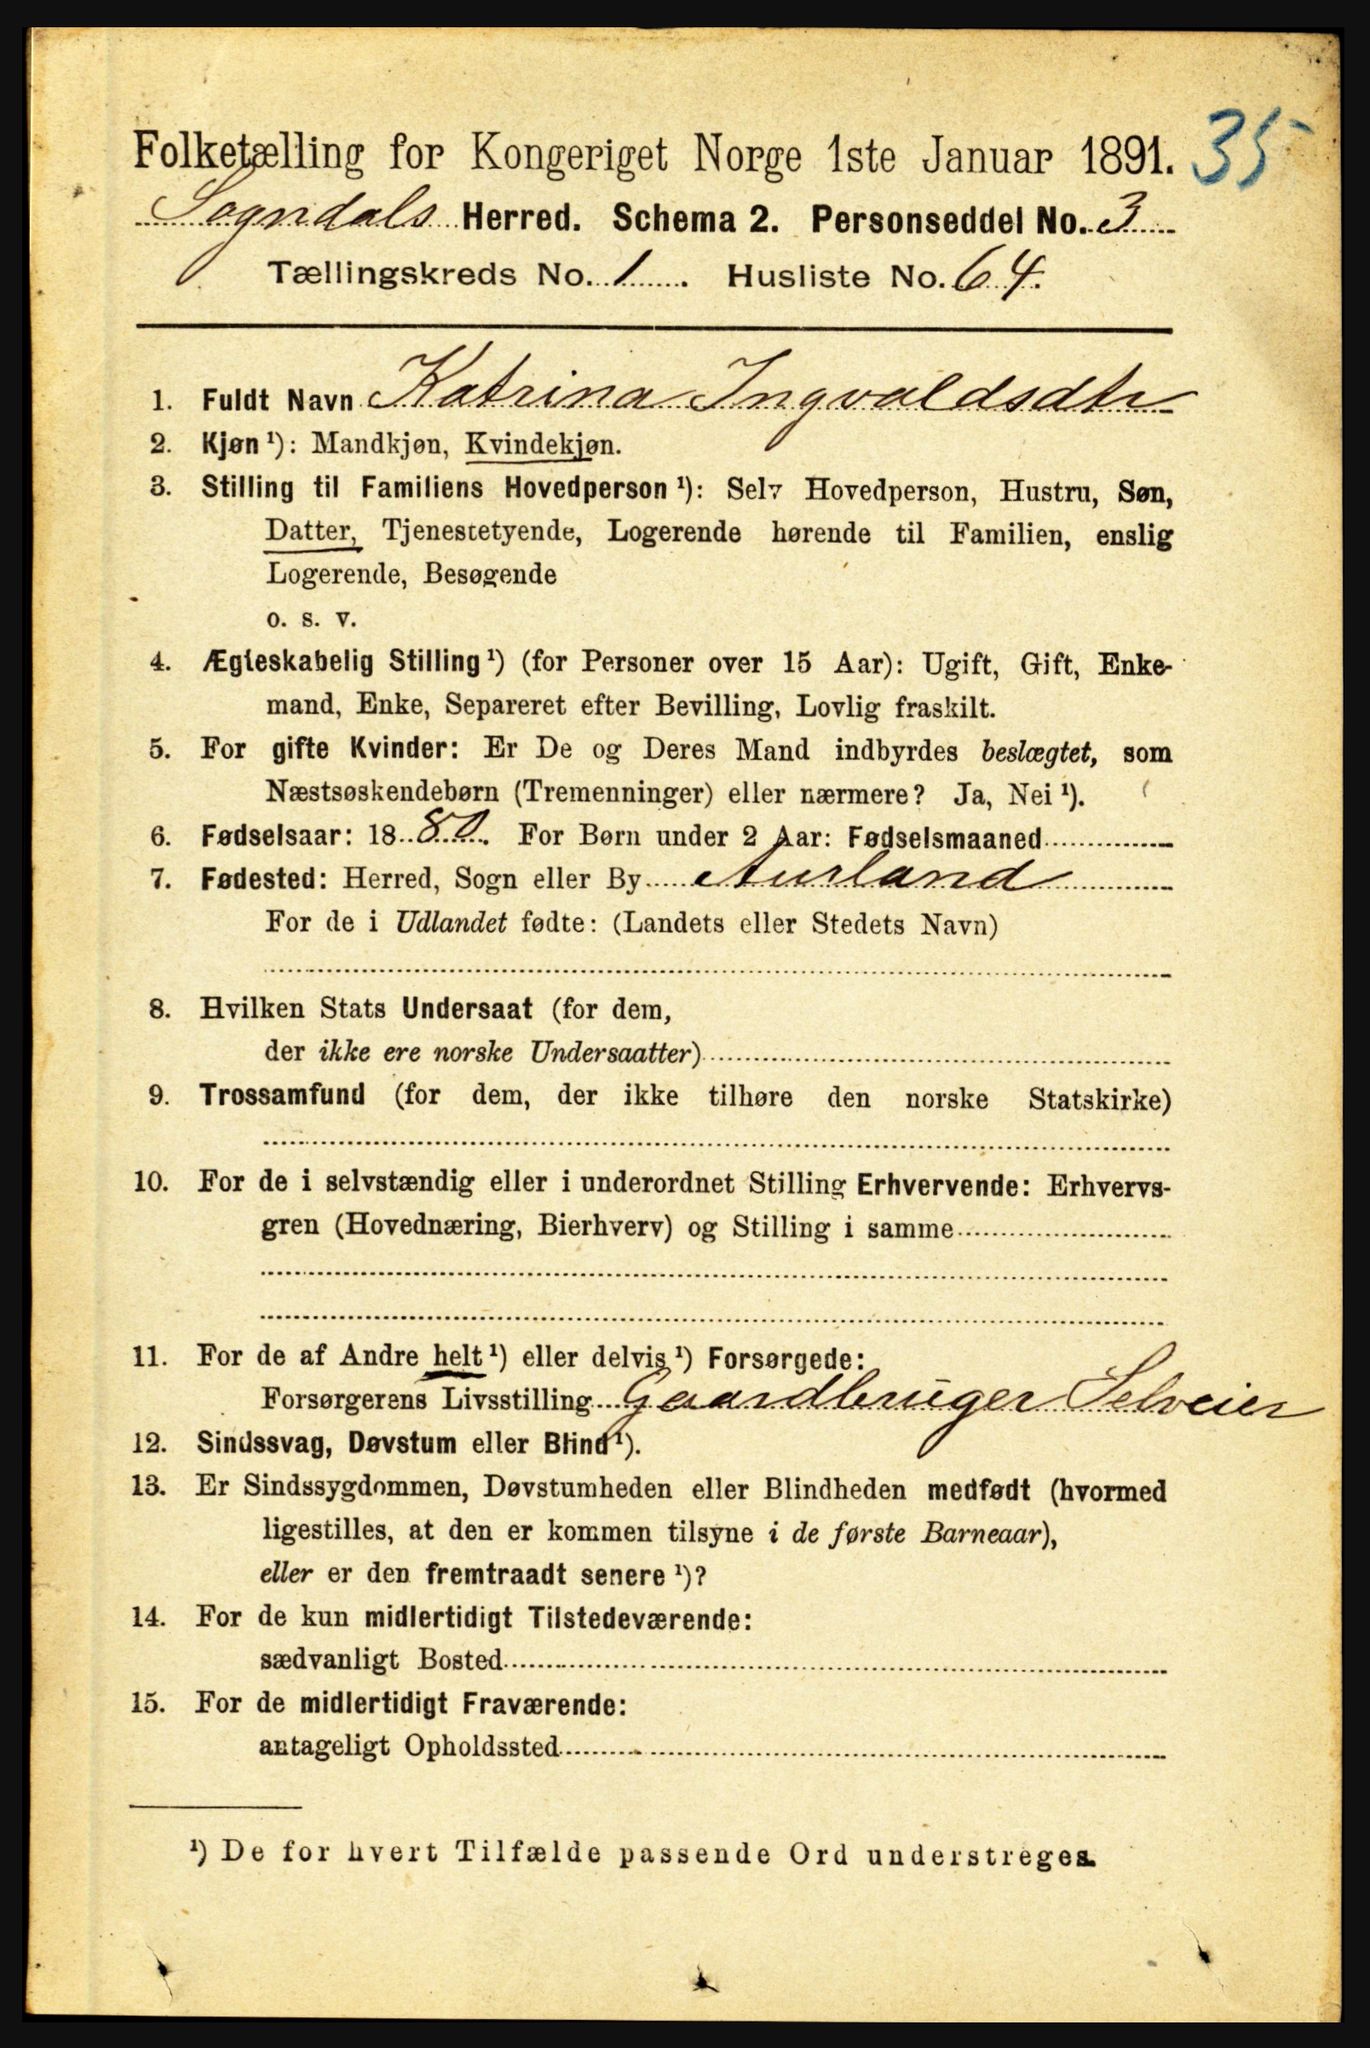 35
Folketælling for Kongeriget Norge 1ste Januar 1891.
Sogndals Herred. Schema 2. Personseddel No. 3
Tællingskreds No. 1. Husliste No. 64.
1. Fuldt Navn Katrina Ingvaldsdtr
2. Kjøn ¹): Mandkjøn, Kvindekjøn.
3. Stilling til Familiens Hovedperson ¹): Selv Hovedperson, Hustru, Søn,
Datter, Tjenestetyende, Logerende hørende til Familien, enslig
Logerende, Besøgende
o. s. v.
4. Ægteskabelig Stilling ¹) (for Personer over 15 Aar): Ugift, Gift, Enke-
mand, Enke, Separeret efter Bevilling, Lovlig fraskilt.
5. For gifte Kvinder: Er De og Deres Mand indbyrdes beslægtet, som
Næstsøskendebørn (Tremenninger) eller nærmere? Ja, Nei ¹).
6. Fødselsaar: 1880. For Børn under 2 Aar: Fødselsmaaned
7. Fødested: Herred, Sogn eller By Aurland
For de i Udlandet fødte: (Landets eller Stedets Navn)
8. Hvilken Stats Undersaat (for dem,
der ikke ere norske Undersaatter)
9. Trossamfund (for dem, der ikke tilhøre den norske Statskirke)
10. For de i selvstændig eller i underordnet Stilling Erhvervende: Erhvervs-
gren (Hovednæring, Bierhverv) og Stilling i samme
11. For de af Andre helt ¹) eller delvis ¹) Forsørgede:
Forsørgerens Livsstilling Gaardbruger Selveier
12. Sindssvag, Døvstum eller Blind ¹).
13. Er Sindssygdommen, Døvstumheden eller Blindheden medfødt (hvormed
ligestilles, at den er kommen tilsyne i de første Barneaar),
eller er den fremtraadt senere ¹)?
14. For de kun midlertidigt Tilstedeværende:
sædvanligt Bosted
15. For de midlertidigt Fraværende:
antageligt Opholdssted
¹) De for hvert Tilfælde passende Ord understreges.